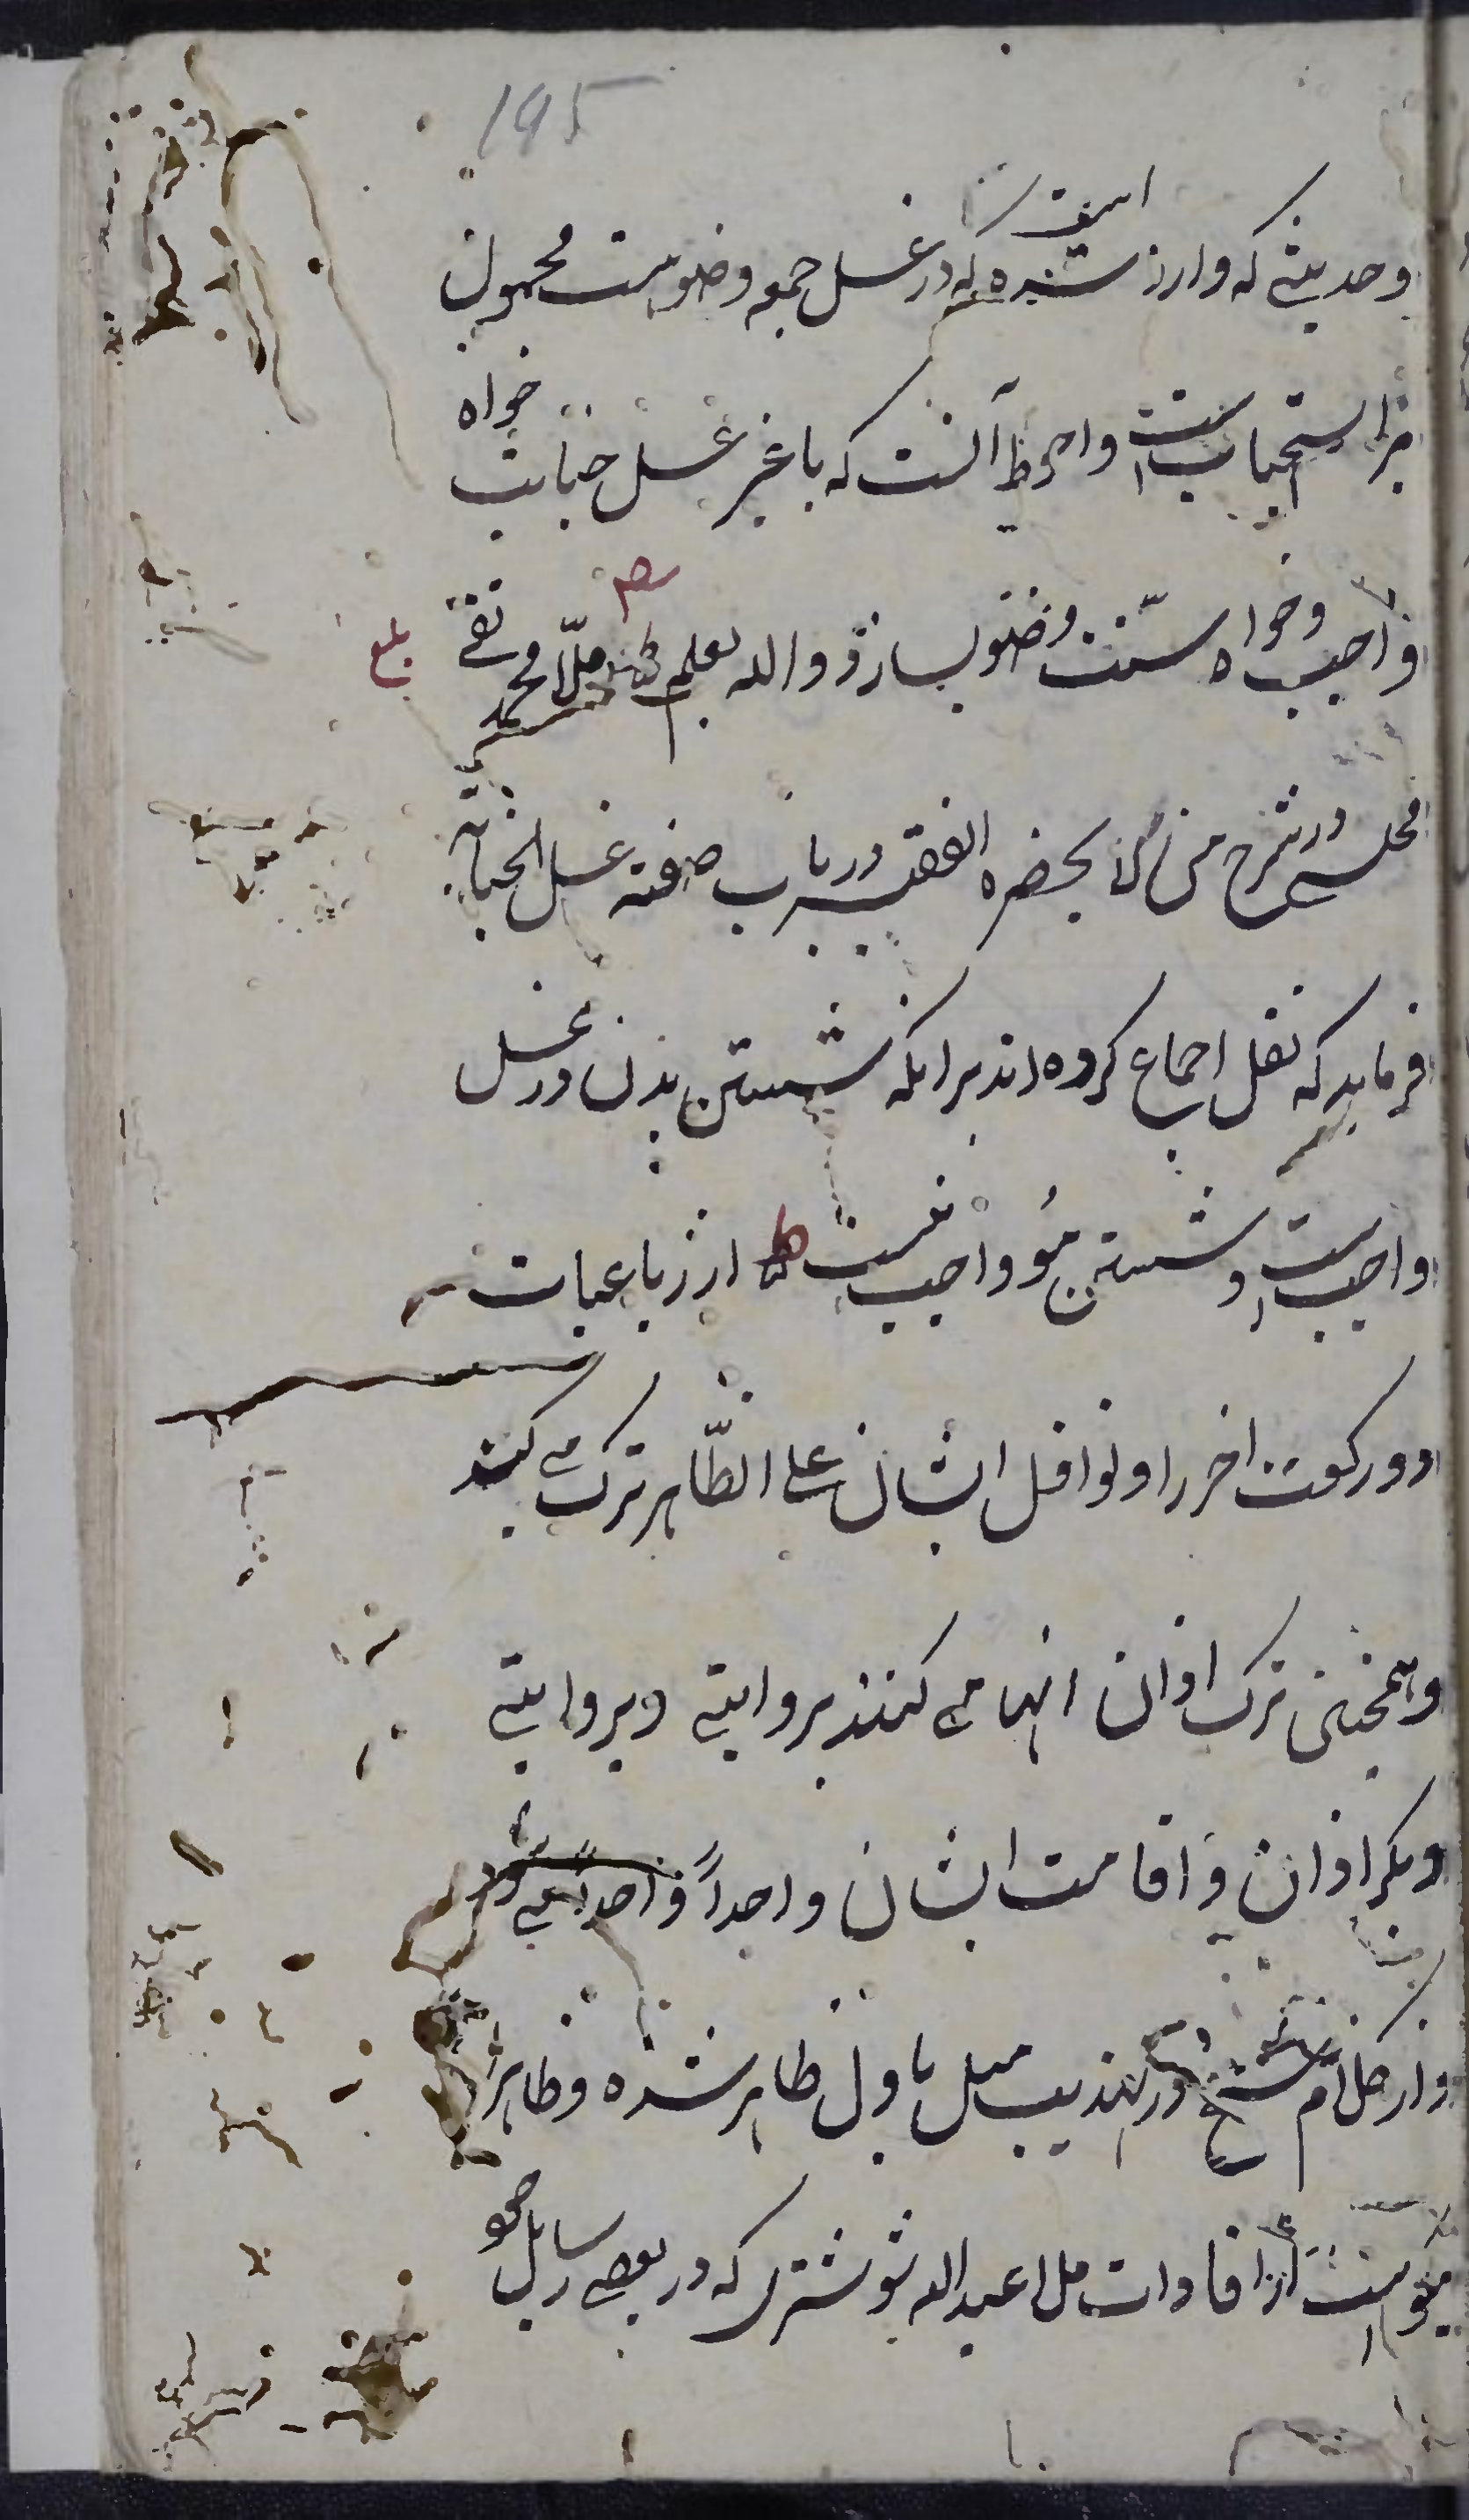 195
وحدیثی که وارد شده است که در غسل جمعه وضوست محمول
بر استحبابست و احوط آنست که با غیر غسل جنابت خواه
واجب و خواه سنت وضو بسازد والله یعلم ملا محمد تقی بلغ
مجلسی در شرح من لا یحضره الفقیه در باب صفة غسل الجنابة
فرماید که نقل اجماع کرده اند بر انکه شستن بدن در غسل
واجبست و شستن مو واجب نیست از رباعیات
دو رکعت اخر را و نوافل ایشان علی الظاهر ترک می کنند
و همچنین ترک اذان انها می کنند بروایتی و بروایتی
دیگر اذان و اقامت ایشان واحداً واحداً می شود
و از کلام شیخ در تهذیب میل باول ظاهر شده و ظاهراً
از افادات ملا عبدالله شوشتری که در بعضی رسایل خود